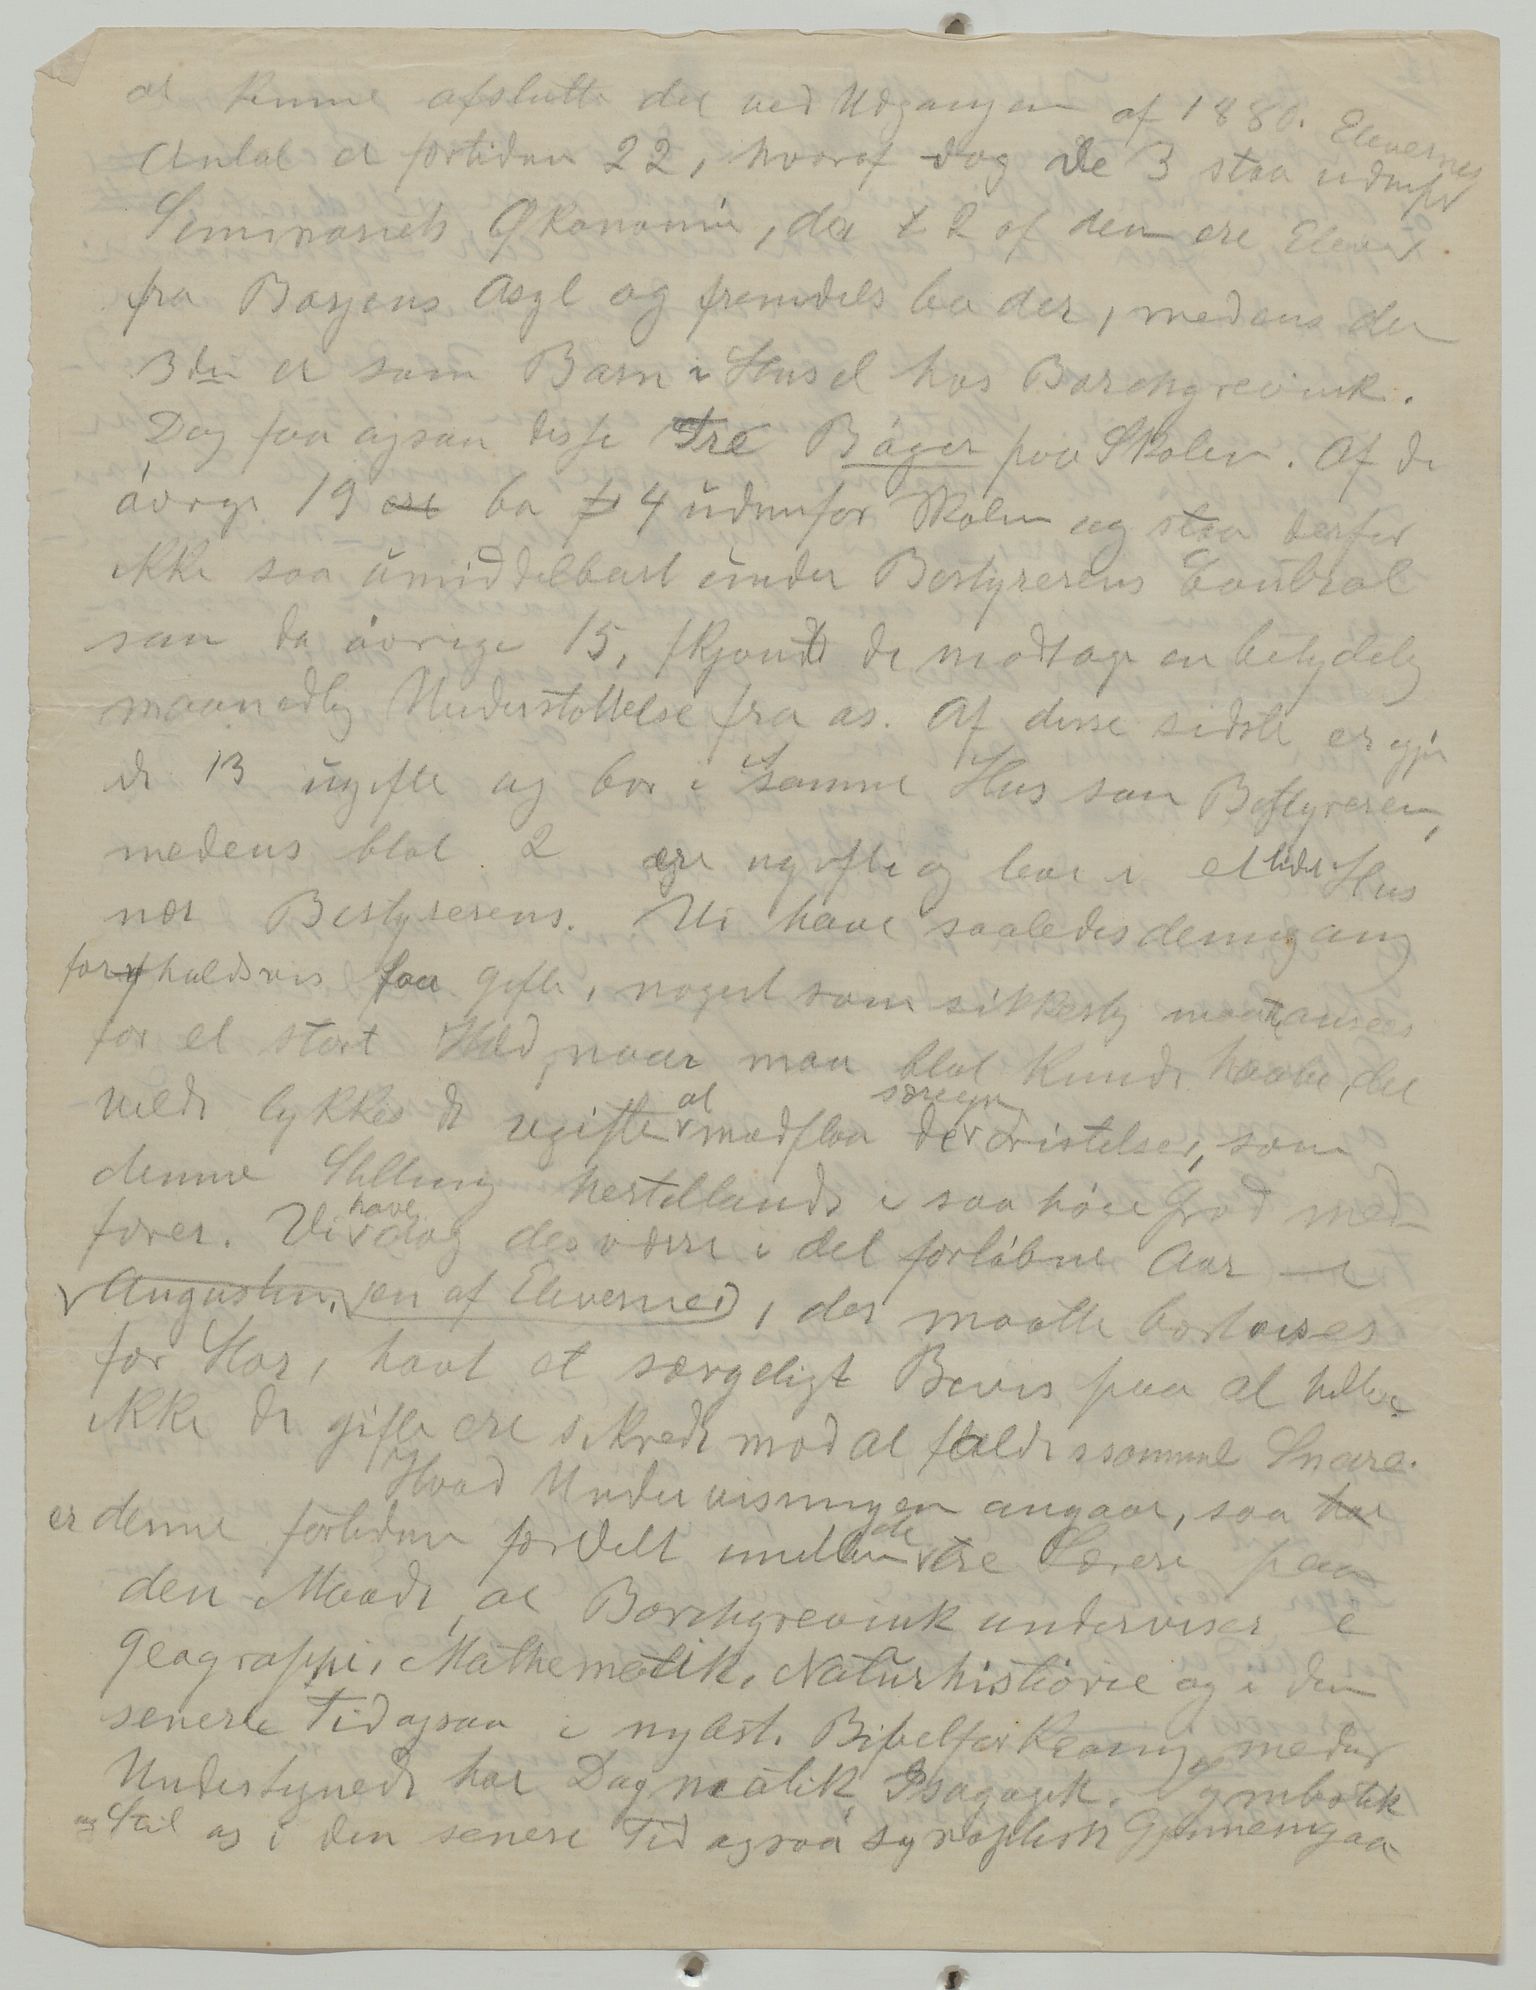 at kunne afslutte det ved Udgangen af 1880. Elevernes
Antal er fortiden 22, hvoraf dog de 3 staa udenfor
Seminariets Økonomi, da 2 af dem ere Elever
fra Borgens Asyl og fremdeles bo der, medens den
3die er som Barn i Huset hos Borchgrevink.
Dog faa ogsaa disse tre Bøger paa Skolen. Af de
øvrige 19 ere bo 4 udenfor Skolen og staa derfor
ikke saa umiddelbart under Bestyrerens Control
som de øvrige 15, skjøndt de modtage en betydelig
maanedlig Understøttelse fra os. Af disse sidste er igjen
de 13 ugifte og bor i samme Hus som Bestyreren,
medens blot 2 ere og bor i et lidet Hus
nær Bestyrerens. Vi have saaledes dennegang
forholdsvis faa gifte, noget som sikkerlig maa ansees
for et stort Held, naar man blot kunde haabe, det
vilde lykkes de ugifte at modstaa de særegne Fristelser, som
denne Stilling hertillands i saa høi Grad med-
fører. Vi have dog desværre i det forløbne Aar i
Augustin, en af Eleverne, der maatte bortvises
for Hor, havt et sørgeligt Bevis paa at heller
ikke de gifte ere sikrede mod at falde i samme Snare.
Hvad Undervisningen angaar, saa har
er denne fortiden fordelt imellem de tre Lærere paa
den Maade, at Borchgrevink underviser i
Geographi, Mathematik, Naturhistorie og i den
senere Tid ogsaa i nytest. Bibelforklaring, medens
Undertegnede har Dogmatik, Isagogik, Symbolik
og Stil og i den senere Tid ogsaa synoptisk Gjennemgaa-